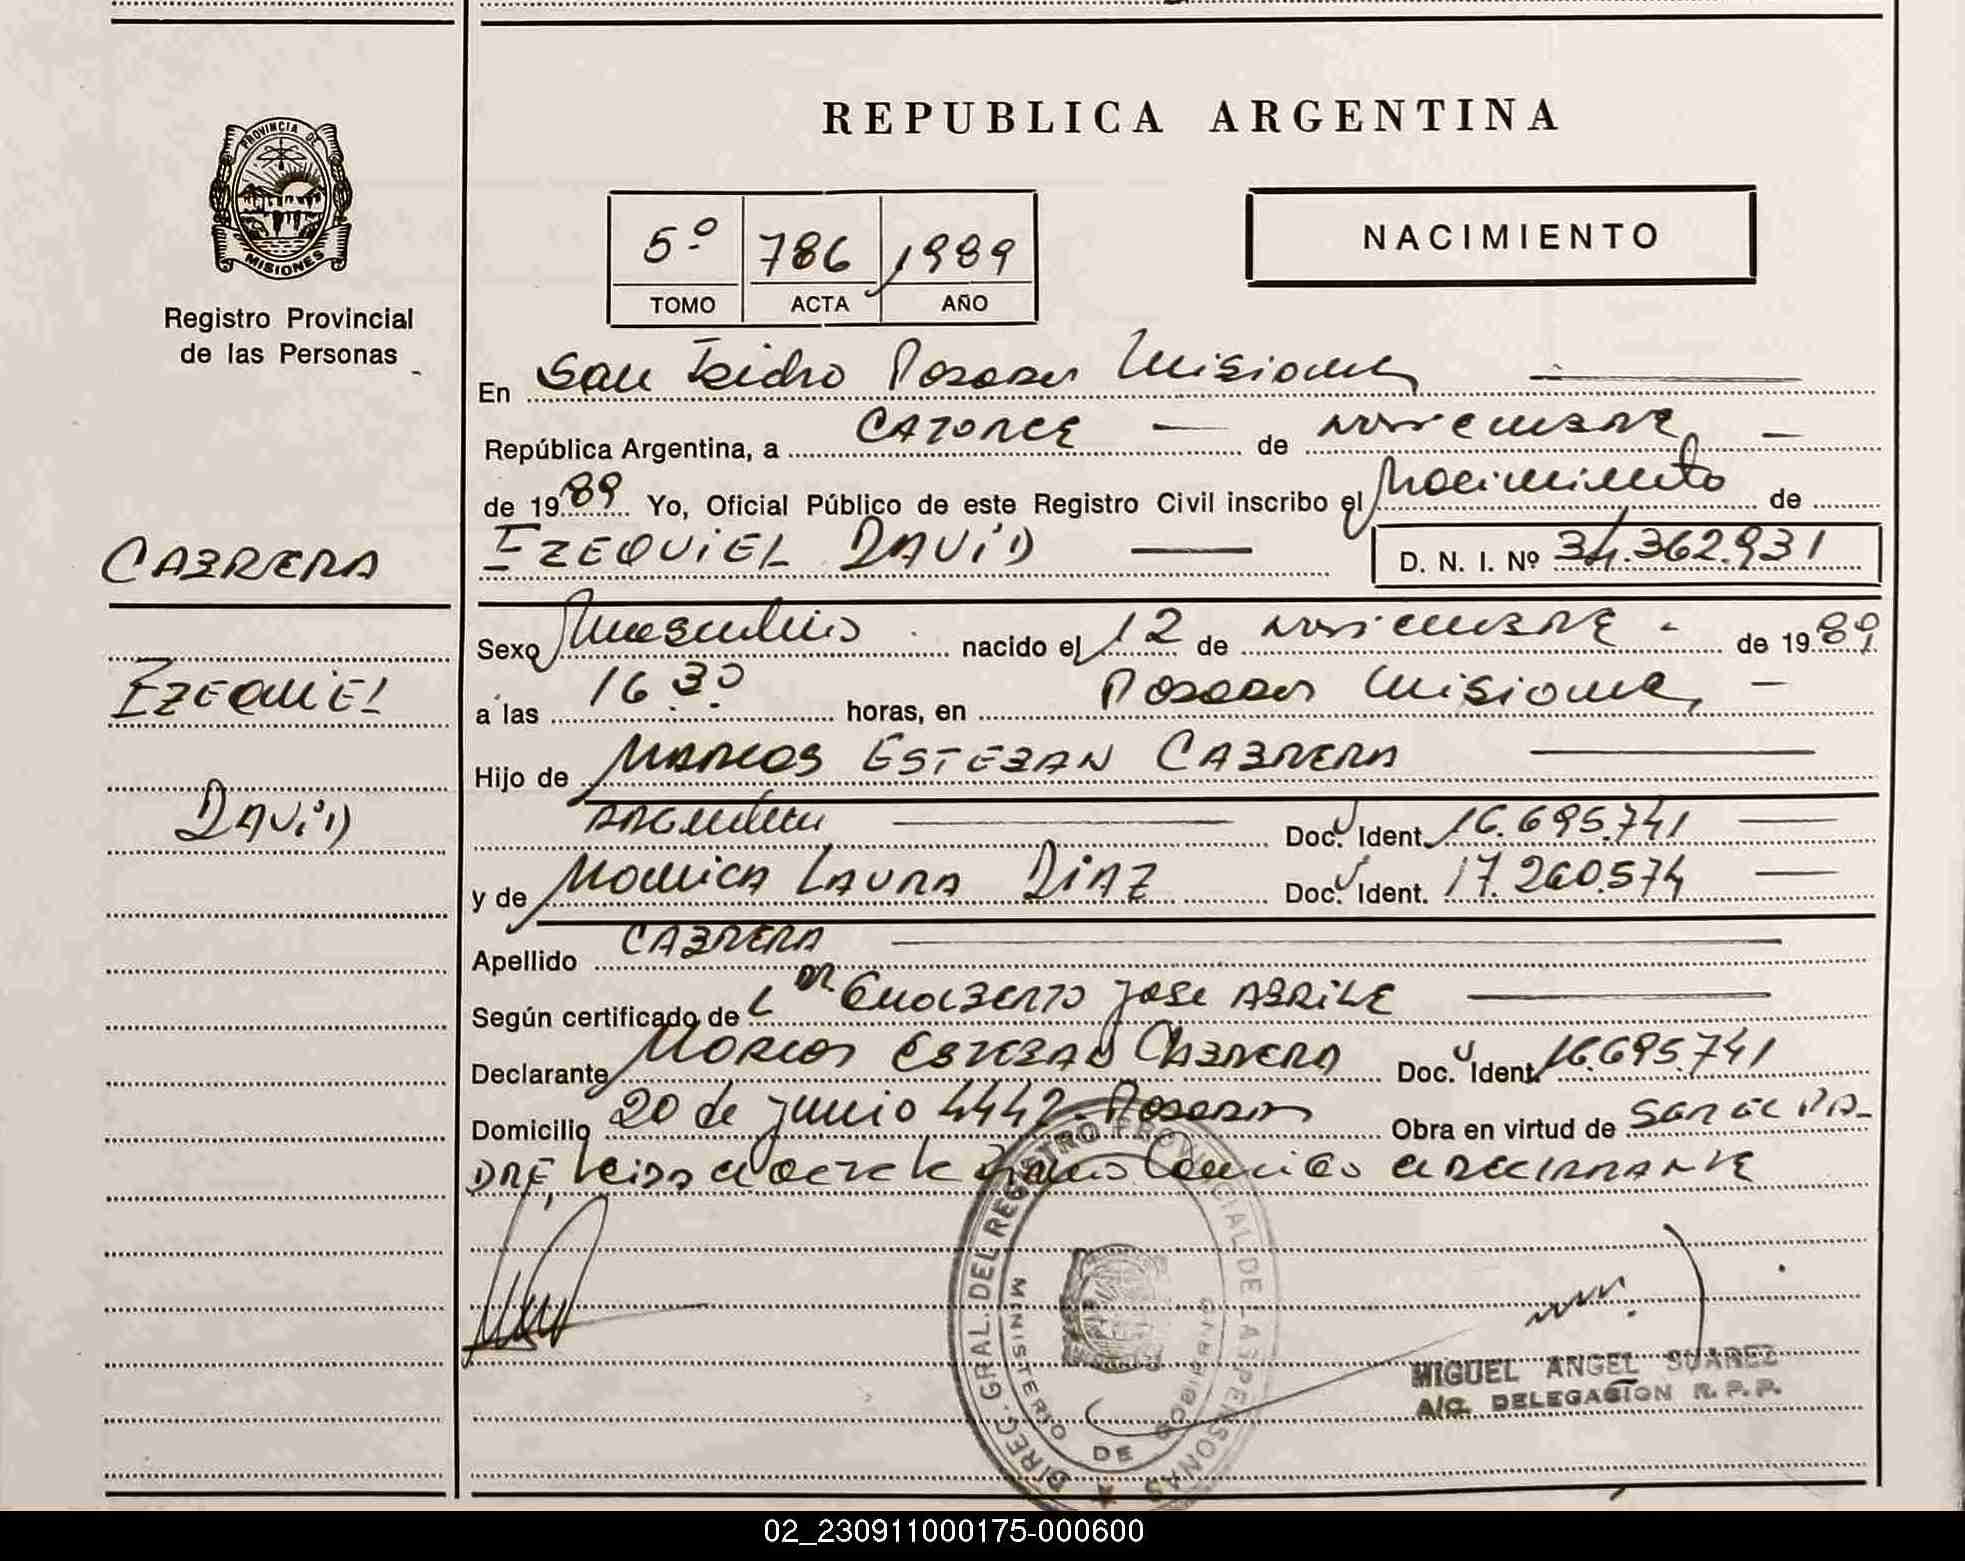 REPUBLICA ARGENTINA
PROVINCIA DE
MISIONES
Registro Provincial
de las Personas
5º 786 1989
TOMO ACTA AÑO
NACIMIENTO
En San Isidro Posadas Misiones
República Argentina, a CATORCE de noviembre
de 1989 Yo, Oficial Público de este Registro Civil inscribo el Nacimiento de
CABRERA
EZEQUIEL DAVID
D. N. I. Nº 34.362.931
Sexo Masculino nacido el 12 de noviembre de 1989
EZEQUIEL
a las 16 30 horas, en Posadas Misiones
Hijo de MARCOS ESTEBAN CABRERA
DAVID
ARGENTINO Doc. U Ident. 16.695.741
y de MONICA LAURA DIAZ Doc. U Ident. 17.260.574
Apellido CABRERA
Según certificado de L DR JOSE ABRILE
Declarante MARCOS ESTEBAN CABRERA Doc. U Ident. 16.695.741
Domicilio 20 de junio 4442 Posadas Obra en virtud de SER EL PA-
DRE, Leida el acta la firma conmigo el DECLARANTE
DIREC. GRAL. DEL REGISTRO PROVINCIAL DE LAS PERSONAS
MINISTERIO DE GOBIERNO
MIGUEL ANGEL SUAREZ
A/C. DELEGACION R. P. P.
02_230911000175-000600